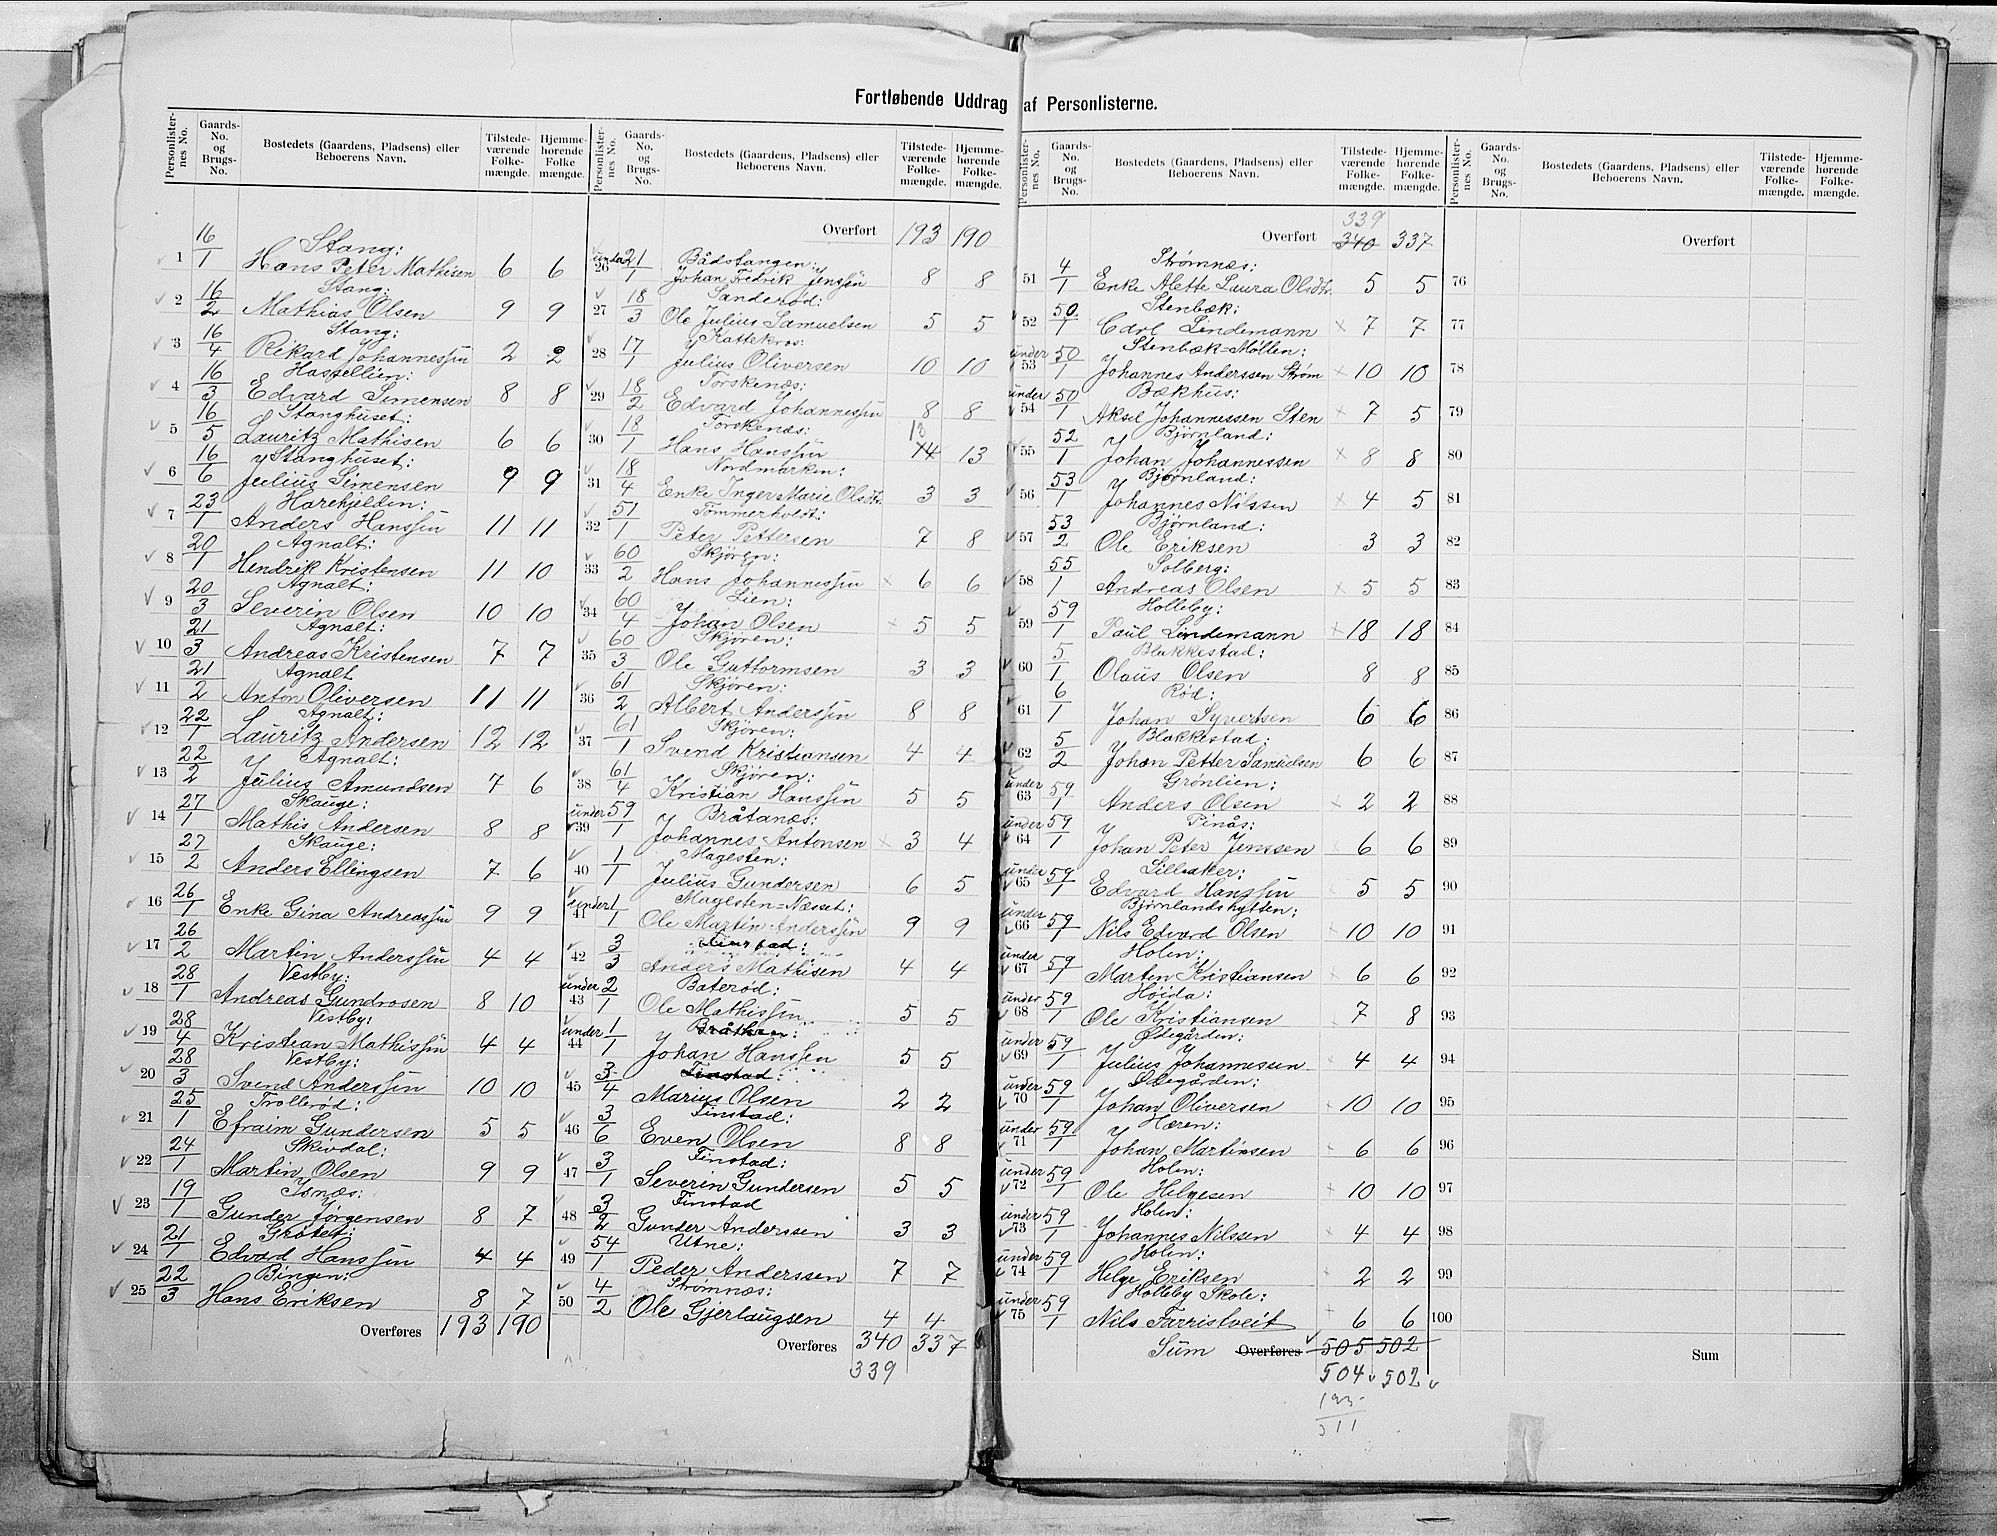 Fortløbende Uddrag af Personlisterne.
Personlister-nes No. Gaards-No. og Brugs-No. Bostedets (Gaardens, Pladsens) eller Beboerens Navn. Tilstede-værende Folke-mængde. Hjemme-hørende Folke mængde.
16 Stang:
1 1 Hans Peter Mathisen 6 6
16 Stang:
2 2 Mathias Olsen 9 9
16 Stang:
3 4 Rikard Johannessen 2 2
16 Hassellien:
4 3 Edvard Simensen 8 8
16 Stanghuset:
5 5 Lauritz Mathisen 6 6
16 Stanghuset:
6 6 Julius Simensen 9 9
23 Harekjelden:
7 1 Anders Hanssen 11 11
20 Agnalt:
8 1 Hendrik Kristensen 11 10
20 Agnalt:
9 3 Severin Olsen 10 10
21 Agnalt:
10 3 Andreas Kristensen 7 7
21 Agnalt
11 2 Anton Oliversen 11 11
22 Agnalt:
12 1 Lauritz Andersen 12 12
22 Agnalt:
13 2 Julius Amundsen 7 6
27 Skauge:
14 1 Mathis Andersen 8 8
27 Skauge:
15 2 Anders Ellingsen 7 6
26
16 1 Enke Gina Andreassen 9 9
26
17 2 Martin Anderssen 4 4
28 Vestby:
18 1 Andreas Gundrosen 8 10
28 Vestby:
19 4 Kristian Mathissen 4 4
28 Vestby:
20 3 Svend Anderssen 10 10
25 Trollerød:
21 1 Efraim Gundersen 5 5
24 Skivdal:
22 1 Martin Olsen 9 9
19 Isnæs:
23 1 Gunder Jørgensen 8 7
21 Grøtet:
24 1 Edvard Hanssen 4 4
22 Bingen:
25 3 Hans Eriksen 8 7
Overføres 193 190
Personlister-nes No. Gaards-No. og Brugs-No. Bostedets (Gaardens, Pladsens) eller Beboerens Navn. Tilstede-værende Folke-mængde. Hjemme-hørende Folke-mængde.
Overført 193 190
under 21 Bådstangen:
26 1 Johan Fredrik Jenssen 8 8
18 Sanderød:
27 3 Ole Julius Samuelsen 5 5
17 Kattekros:
28 1 Julius Oliversen 10 10
18 Torskenæs:
29 2 Edvard Johannessen 8 8
18 Torskenæs: 13
30 1 Hans Hanssen 14 13
18 Nordmarken:
31 4 Enke Inger Marie Olsdtr 3 3
51 Sommerholdt:
32 1 Peter Pettersen 7 8
60 Skjøren:
33 2 Hans Johannessen × 6 6
60 Lien:
34 4 Johan Olsen × 5 5
60 Skjøren:
35 3 Ole Guttormsen 3 3
61 Skjøren:
36 2 Albert Anderssen 8 8
61 Skjøren:
37 1 Svend Kristiansen 4 4
61 Skjøren:
38 4 Kristian Hanssen 5 5
under 59 Bråtanæs:
39 1 Johannes Antonsen × 3 4
1 Magesten:
40 1 Julius Gundersen 6 5
under 1 Magesten=Næsset:
41 1 Ole Martin Anderssen 9 9
3
42 3 Anders Mathisen 4 4
under 2 Baterød:
43 1 Ole Mathissen 5 5
under 1 Bråthen:
44 1 Johan Hanssen 5 5
3 Finstad:
45 4 Marius Olsen 2 2
3 Finstad:
46 6 Even Olsen 8 8
3 Finstad:
47 1 Severin Gundersen 5 5
3 Finstad
48 2 Gunder Anderssen 3 3
54 Utne:
49 1 Peder Anderssen 7 7
4 Strømnæs:
50 2 Ole Gjerlaugsen 4 4
Overføres 340 337
339
Personlister-nes No. Gaards-No. og Brugs-No. Bostedets (Gaardens, Pladsens) eller Beboerens Navn. Tilstede-værende Folke-mængde. Hjemme-hørende Folke-mængde.
339
Overført 340 337
4 Strømnæs:
51 1 Enke Alette Laura Olsdtr. 5 5
50 Stenbæk:
52 1 Carl Lindemann × 7 7
under 50 Stenbæk=Møllen:
53 1 Johannes Anderssen Strøm × 10 10
under 50 Bækhus:
54 1 Aksel Johannessen Sten × 7 5
52 Bjørnland:
55 1 Johan Johannessen × 8 8
53 Bjørnland:
56 1 Johannes Nilssen × 4 5
53 Bjørnland:
57 2 Ole Eriksen 3 3
55 Solberg:
58 1 Andreas Olsen × 5 5
59 Holleby:
59 1 Paul Lindemann × 18 18
5 Blakkestad:
60 1 Olaus Olsen 8 8
6 Rød:
61 1 Johan Syvertsen 6 6
5 Blakkestad:
62 2 Johan Petter Samuelsen 6 6
under 59 Grønlien:
63 1 Anders Olsen × 2 2
under 59 Pinås:
64 1 Johan Peter Jenssen × 6 6
under 59 Lilleaker:
65 1 Edvard Hanssen × 5 5
under 59 Bjørnlandshytten:
66 1 Nils Edvard Olsen × 10 10
under 59 Holen:
67 1 Martin Kristiansen × 6 6
under 59 Høida:
68 1 Ole Kristiansen × 7 8
under 59 Ødegården:
69 1 Julius Johannessen × 4 4
under 59 Ødegården:
70 1 Johan Oliversen × 10 10
under 59 Hæren:
71 1 Johan Martinsen × 6 6
under 59 Holen:
72 1 Ole Helgesen × 10 10
under 59 Holen:
73 1 Johannes Nilssen × 4 4
under 59 Holen:
74 1 Helge Eriksen × 2 2
under 59 Holleby Skole:
75 1 Nils Farristveit × 6 6
Sum Overføres 505 502
504 502
193
311
Personlister-nes No. Gaards-No. og Brugs-No. Bostedets (Gaardens, Pladsens) eller Beboerens Navn. Tilstede-værende Folke-mængde. Hjemme-hørende Folke-mængde.
Overført
76
77
78
79
80
81
82
83
84
85
86
87
88
89
90
91
92
93
94
95
96
97
98
99
100
Sum